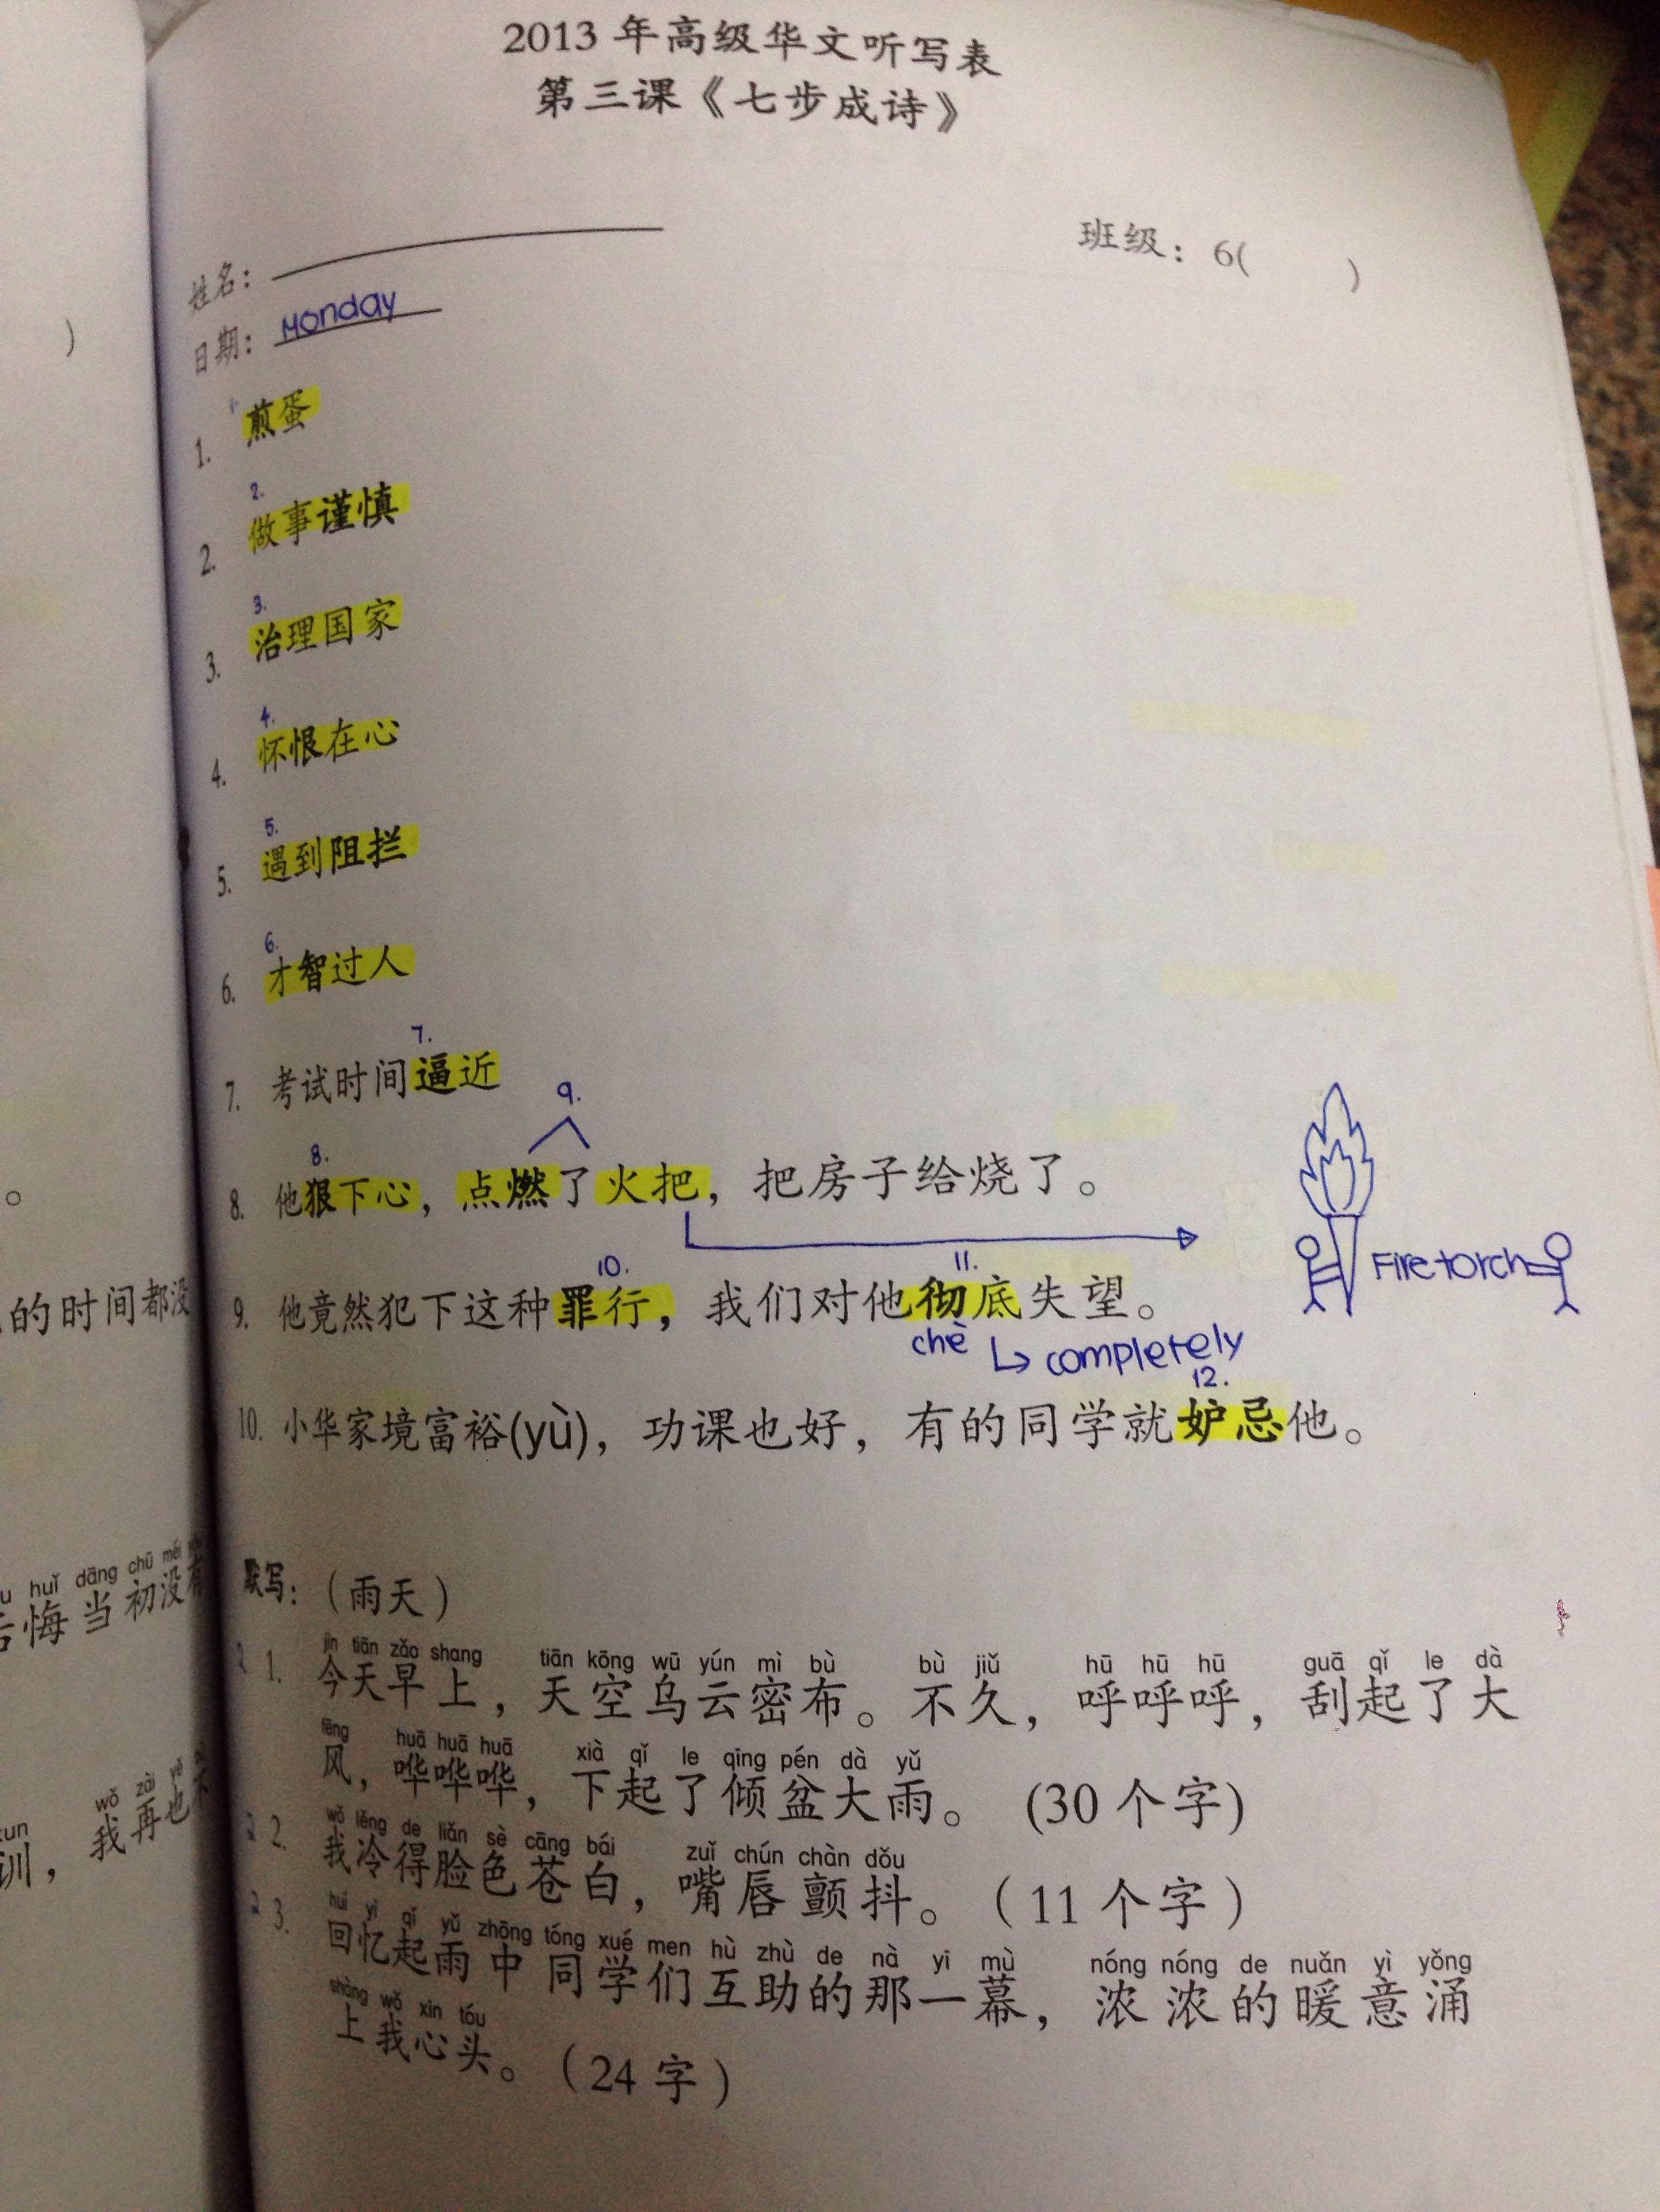 2013 年高级华文听写表
第三课《七步成诗》
班级：6( )
姓名：
日期：Monday
)
1. 煎蛋
2.
2. 做事谨慎
3.
3. 治理国家
4.
4. 怀恨在心
5.
5. 遇到阻拦
6.
6. 才智过人
7.
7. 考试时间逼近
8. 9.
8. 他狠下心，点燃了火把，把房子给烧了。
。
Firetorch
10. 11.
9. 他竟然犯下这种罪行，我们对他彻底失望。
的时间都没
chè ↳ completely
12.
10. 小华家境富裕(yù)，功课也好，有的同学就妒忌他。
默写：（雨天）
huǐ dāng chū méi
悔当初没
jīn tiān zǎo shang tiān kōng wū yún mì bù bù jiǔ hū hū hū guā qǐ le dà
1. 今天早上，天空乌云密布。不久，呼呼呼，刮起了大
fēng huā huā huā xià qǐ le qīng pén dà yǔ
风，哗哗哗，下起了倾盆大雨。 (30 个字)
wǒ zài yě
训，我再也
wǒ lěng de liǎn sè cāng bái zuǐ chún chàn dǒu
2. 我冷得脸色苍白，嘴唇颤抖。（11 个字）
huí yì qǐ yǔ zhōng tóng xué men hù zhù de nà yī mù nóng nóng de nuǎn yì yǒng
3. 回忆起雨中同学们互助的那一幕，浓浓的暖意涌
shàng wǒ xīn tóu
上我心头。（24 字）